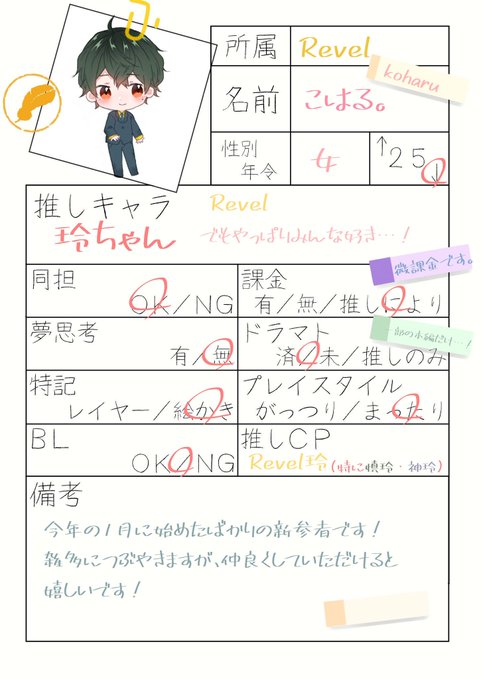 所属 Revel
koharu
名前 こはる。
性別 年令 女 ↑25↓
推しキャラ Revel
玲ちゃん でもやっぱりみんな好き…!
微課金です。
同担 OK/NG
課金 有/無/推しにより
一部の本編だけ…!
夢思考 有/無
ドラマト 済/未/推しのみ
特記 レイヤー/絵かき
プレイスタイル がっつり/まったり
BL OK/NG
推しCP Revel玲(特に慎玲・神玲)
備考
今年の1月に始めたばかりの新参者です!
雑多につぶやきますが、仲良くしていただけると
嬉しいです!